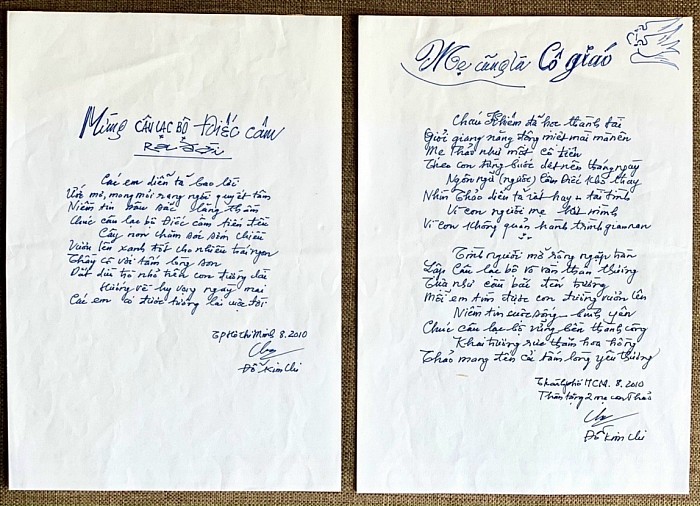 Mừng CÂU LẠC BỘ ĐIẾC CÂM
RA ĐỜI
Các em diễn tả bao lời
Ước mơ, mong mỏi rạng ngời quyết tâm
Niềm tin sâu sắc lặng thầm
Chúc câu lạc bộ Điếc câm tiến đều
Cây non chăm sóc sớm chiều
Vươn lên xanh tốt cho nhiều trái ngon
Thầy cô với tấm lòng son
Dắt dìu trẻ nhỏ trên con đường dài
Hướng về hy vọng ngày mai
Các em có được tương lai tuyệt vời
TP Hồ Chí Minh 8.2010
Đỗ Kim Chi
Mẹ cũng là Cô giáo
Cháu Khiêm đã học thành tài
Giỏi giang năng động miệt mài mà nên
Mẹ Thảo như một cô tiên
Theo con từng bước dệt nên tháng ngày
Ngôn ngữ (người) Câm Điếc khó thay
Nhìn Thảo diễn tả rất hay tài tình
Vì con người mẹ hết mình
Vì con không quản hành trình gian nan
Tình người mở rộng ngập tràn
Lập câu lạc bộ vô vàn thân thương
Tựa như cầu bắc đến trường
Mỗi em tìm được con đường vươn lên
Niềm tin cuộc sống bình yên
Chúc câu lạc bộ vững bền thành công
Khai trương rực thắm hoa hồng
Thảo mang tên cả tấm lòng yêu thương
Thành phố HCM. 8.2010
Thân tặng 2 mẹ con Thảo
Đỗ Kim Chi